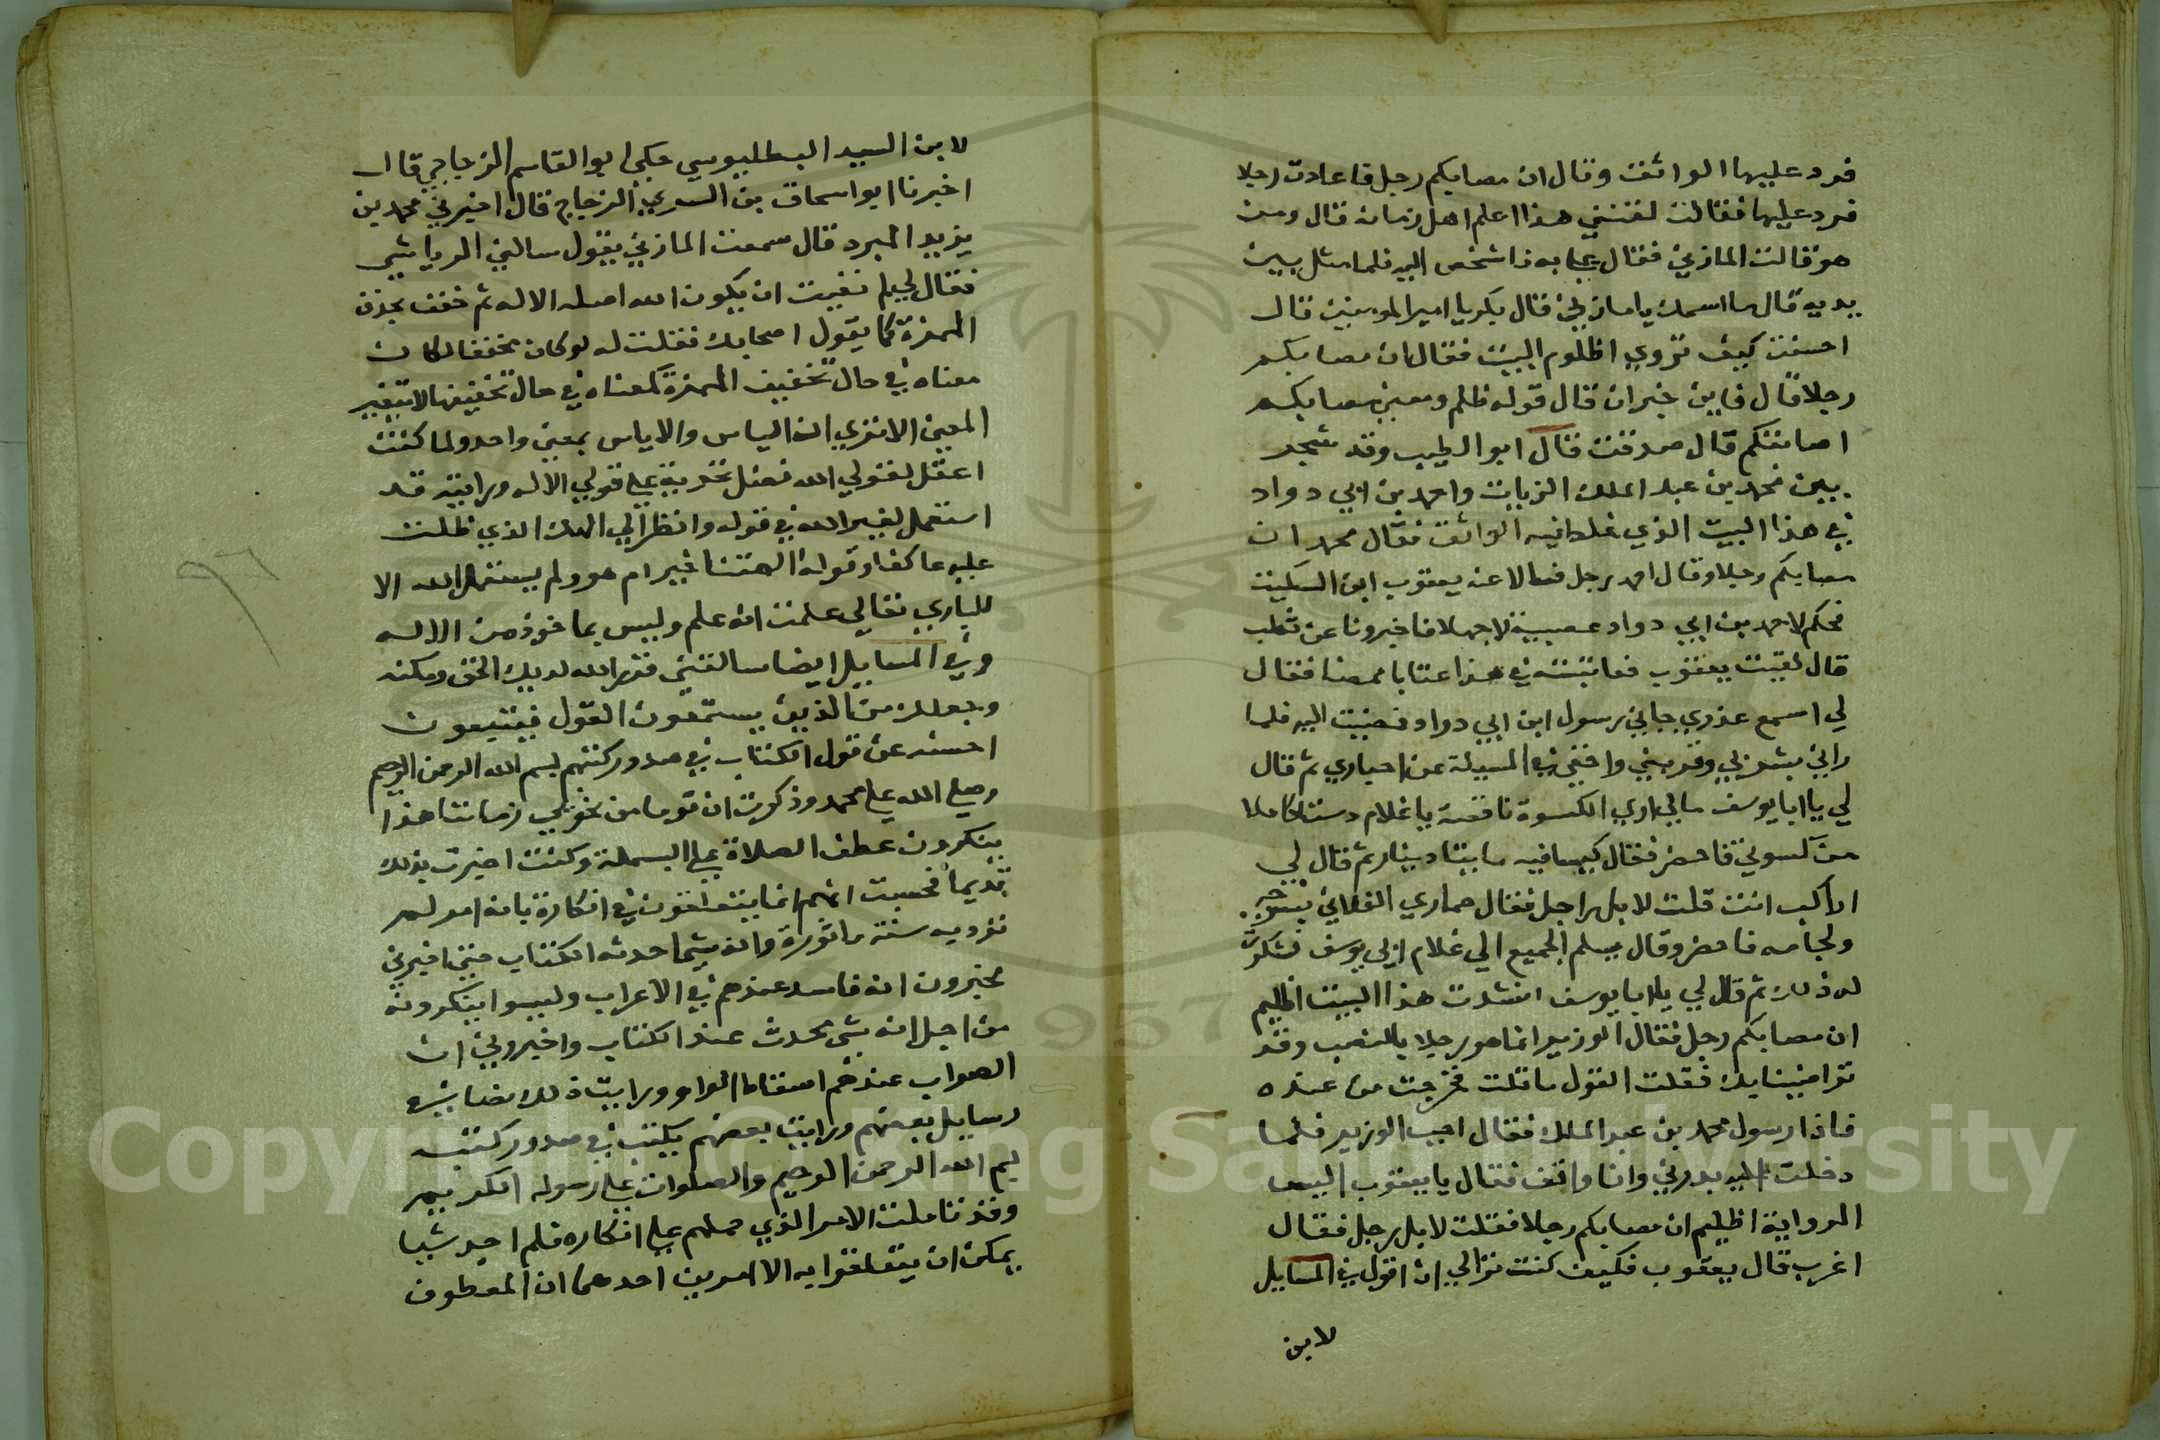 فرد عليها الواثق وقال ان مصابكم رجل فاعادت رجلا
فرد عليها فقالت لقنني هذا اعلم اهل زمانه قال ومن
هو قالت المازني فقال علي به فاشخص اليه فلما مثل بين
يديه قال ما اسمك يا مازني قال بكر يا امير المومنين قال
احسنت كيف تروي اظلوم البيت فقال ان مصابكم
رجلا قال فاين خبر ان قال قوله ظلم ومعنى مصابكم
اصابتكم قال صدقت قال ابو الطيب وقد شجر
بين محمد بن عبد الملك الزيات واحمد بن ابي دواد
في هذا البيت الذي غلط فيه الواثق فقال محمد ان
مصابكم رجلا وقال احمد رجل فسالا عنه يعقوب ابن السكيت
فحكم لاحمد بن ابي دواد عصبية لا جهلا فاخبرونا عن ثعلب
قال لقيت يعقوب فعاتبته في هذا عتابا ممضا فقال
لي اسمع عذري جاني رسول ابن ابي دواد فمضيت اليه فلما
راني بش بي وقربني واحفى في المسيلة عن اخباري ثم قال
لي يا ابا يوسف مالي اري الكسوة ناقصة يا غلام دستا كاملا
من كسوتي فاحضر فقال كيسا فيه مايتا دينار ثم قال لي
اراكب انت قلت لا بل راجل فقال حماري الفلاني بسرجه
ولجامه فاحضر وقال يسلم الجميع الي غلام ابي يوسف فشكرت
له ذلك ثم قال لي يا ابا يوسف انشدت هذا البيت اظليم
ان مصابكم رجل فقال الوزير انما هو رجلا بالنصب وقد
تراضينا بك فقلت القول ما قلت فخرجت من عنده
فاذا رسول محمد بن عبد الملك فقال اجب الوزير فلما
دخلت اليه بدرني وانا واقف فقال يا يعقوب اليس
الرواية اظليم ان مصابكم رجلا فقلت لا بل رجل فقال
اغرب قال يعقوب فكيف كنت تراني ان اقول في المسايل
لابن
لابن السيد البطليوسي حكى ابو القاسم الزجاجي قال
اخبرنا ابو اسحاق بن السري الزجاج قال اخبرني محمد بن
يزيد المبرد قال سمعت المازني يقول سالني الرياشي
فقال لي لم نفيت ان يكون الله اصله الاله ثم خفف بحذف
الهمزة كما يقول اصحابك فقلت له لو كان مخففا لكان
معناه في حال تخفيف الهمزة كمعناه في حال تحقيقها لا يتغير
المعنى الا تري ان الياس والاياس بمعنى واحد ولما كنت
اعقل لقولي الله فضل مزية علي قولي الاله ورايته قد
استعمل لغير الله في قوله وانظر الي الهك الذي ظلت
عليه عاكفا وقوله االهتنا خير ام هو ولم يستعمل الله الا
للباري تعالي علمت انه علم وليس بماخوذ من الاله
وفي المسايل ايضا سالتني قرر الله لديك الحق ومكنه
وجعلك من الذين يستمعون القول فيتبعون
احسنه عن قول الكتاب في صدور كتبهم بسم الله الرحمن الرحيم
وصلي الله علي محمد وذكرت ان قوما من نحويي زماننا هذا
ينكرون عطف الصلاة علي البسملة وكنت اخبرت بذلك
قديما فحسبت انهم انما يتعلقون في انكاره بانه امر لم
ترد به سنة ماثورة وانه شي احدثه الكتاب حتى اخبرني
مخبرون انه فاسد عندهم في الاعراب وليسوا ينكرونه
من اجل انه شي محدث عند الكتاب واخبروني ان
الصواب عندهم اسقاط الواو ورايت ذلك نصا في
رسايل بعضهم ورايت بعضهم يكتب في صدور كتبه
بسم الله الرحمن الرحيم والصلوات علي رسوله الكريم
وقد تاملت الامر الذي حملهم علي انكاره فلم اجد شيا
يمكن ان يتعلقوا به الا امرين احدهما ان المعطوف
Copyright © King Saud University
1957